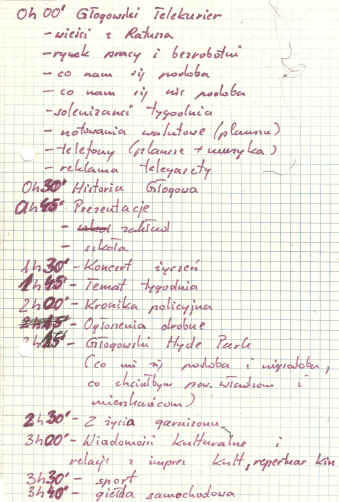 0h 00' Głogowski Telekurier
- wieści z Ratusza
- rynek pracy i bezrobotni
- co nam się podoba
- co nam się nie podoba
- solenizanci tygodnia
- notowania walutowe (plansza)
- telefony (plansze + muzyka)
- reklama telegazety
0h 30' Historia Głogowa
0h 45' Prezentacje
- zakład
- szkoła
1h 30' - Koncert życzeń
1h 45' - Temat tygodnia
2h 00' - Kronika policyjna
2h 15' - Ogłoszenia drobne
2h 15' - Głogowski Hyde Park
(co mi się podoba i niepodoba,
co chciałbym pow. władzom i
mieszkańcom)
2h 30' - Z życia garnizonu
3h 00' - Wiadomości kulturalne i
relacje z imprez kult., repertuar kin
3h 30' - sport
3h 40' - giełda samochodowa